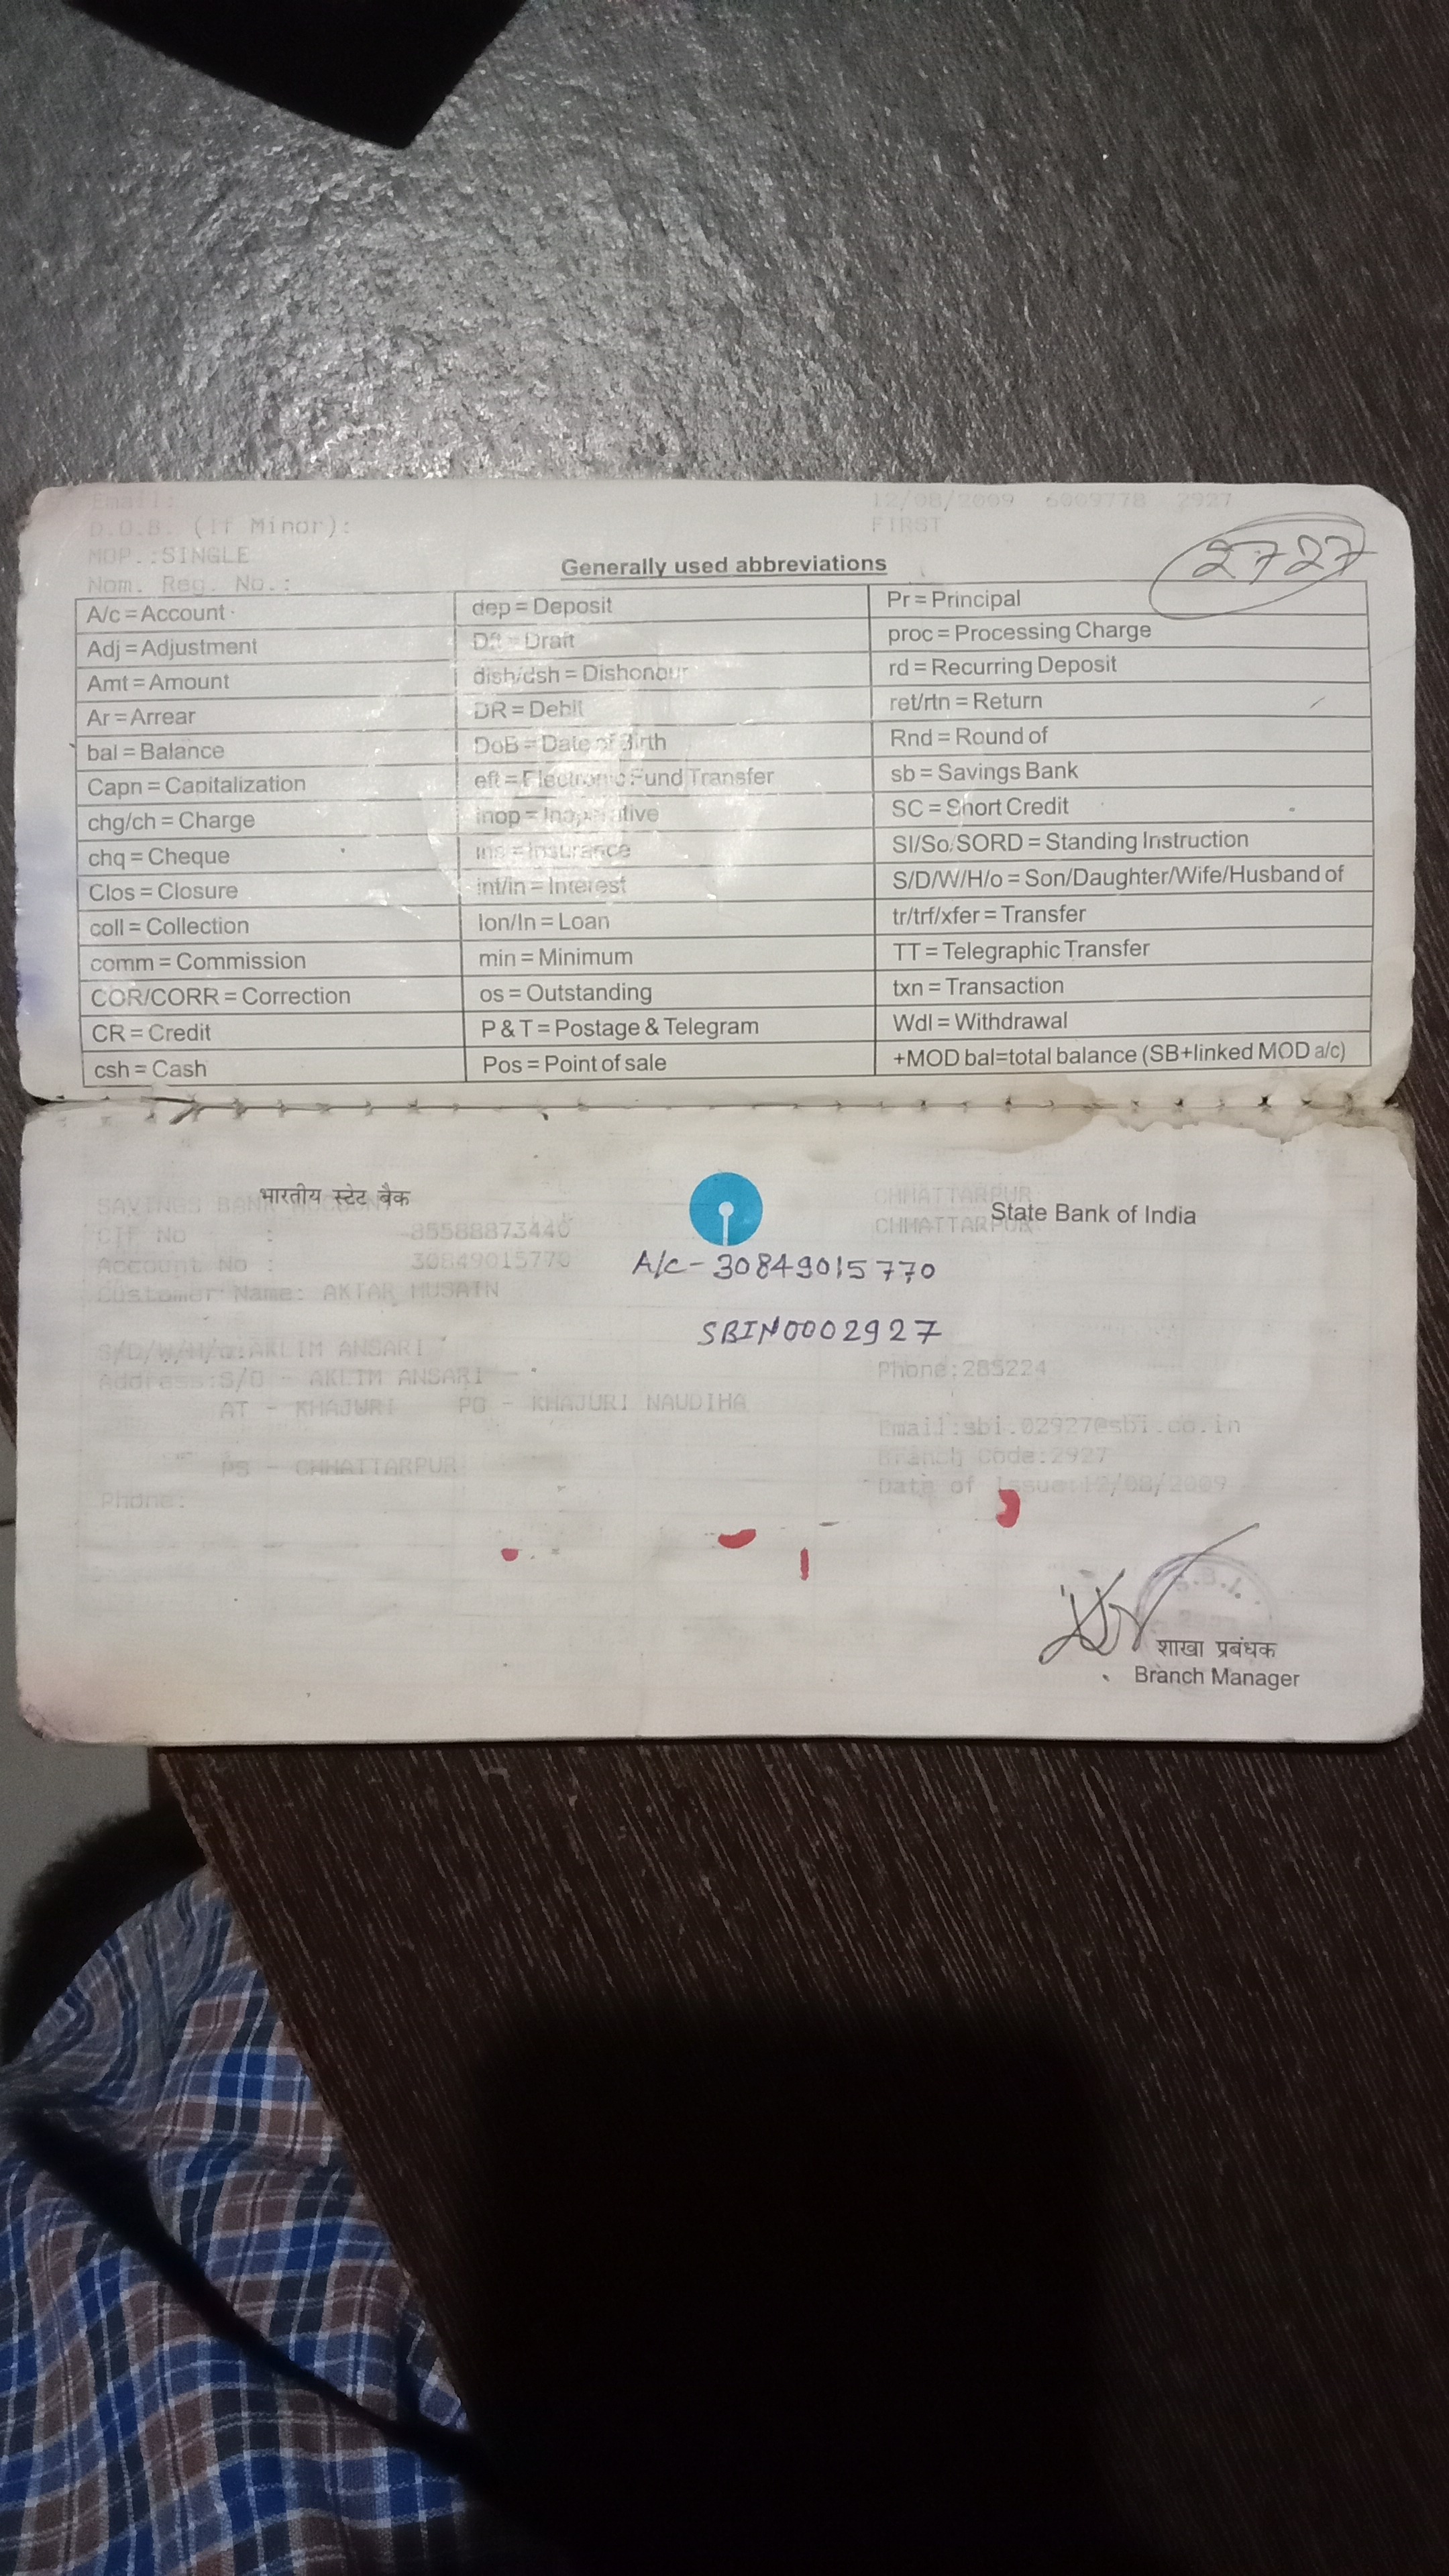 Email:
D.O.B. (If Minor):
MOP.:SINGLE
Nom. Reg. No.:
12/08/2009 6009778 2927
FIRST
2727
Generally used abbreviations
A/c = Account
Adj = Adjustment
Amt = Amount
Ar = Arrear
bal = Balance
Capn = Capitalization
chg/ch = Charge
chq = Cheque
Clos = Closure
coll = Collection
comm = Commission
COR/CORR = Correction
CR = Credit
csh = Cash
dep = Deposit
Dft = Draft
dish/dsh = Dishonour
DR = Debit
DoB = Date of Birth
eft = Electronic Fund Transfer
inop = Inoperative
ins = Insurance
int/in = Interest
lon/ln = Loan
min = Minimum
os = Outstanding
P & T = Postage & Telegram
Pos = Point of sale
Pr = Principal
proc = Processing Charge
rd = Recurring Deposit
ret/rtn = Return
Rnd = Round of
sb = Savings Bank
SC = Short Credit
SI/So/SORD = Standing Instruction
S/D/W/H/o = Son/Daughter/Wife/Husband of
tr/trf/xfer = Transfer
TT = Telegraphic Transfer
txn = Transaction
Wdl = Withdrawal
+MOD bal=total balance (SB+linked MOD a/c)
भारतीय स्टेट बैंक
State Bank of India
SAVINGS BANK ACCOUNT
CIF No : 85588873440
Account No : 30849015770
Customer Name: AKTAR HUSAIN
S/D/W/H/o:AKLIM ANSARI
Address:S/O - AKLIM ANSARI
AT - KHAJWRI PO - KHAJURI NAUDIHA
PS - CHHATTARPUR
Phone:
CHHATTARPUR
CHHATTARPUR
A/c - 30849015770
SBIN0002927
Phone:285224
Email:sbi.02927@sbi.co.in
Branch Code:2927
Date of Issue:12/08/2009
S.B.I.
शाखा प्रबंधक
Branch Manager